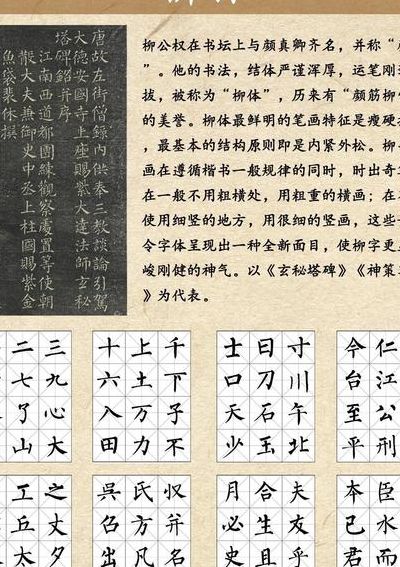 唐故左街僧錄內供奉三教談論引駕
大德安國寺上座賜紫大達法師玄秘
塔碑銘并序
江南西道都團練觀察處置等使朝
散大夫兼御史中丞上柱國賜紫金
魚袋裴休撰
柳公权在书坛上与颜真卿齐名，并称“
”。他的书法，结体严谨浑厚，运笔刚
拔，被称为“柳体”，历来有“颜筋柳
的美誉。柳体最鲜明的笔画特征是瘦硬
，最基本的结构原则即是内紧外松。柳
画在遵循楷书一般规律的同时，时出奇
在一般不用粗横处，用粗重的横画；在
使用细竖的地方，用很细的竖画，这些
令字体呈现出一种全新面目，使柳字更
峻刚健的神气。以《玄秘塔碑》《神策
》为代表。
二三
七九
了心
山大
十上千
六土下
入万子
田力不
士曰寸
口刀川
天石午
少玉北
今仁
台江
至公
平刑
工之
丘丈
太夕
吳氏収
召方并
出凡名
月合夫
必生友
史且乎
本臣
已水
君而